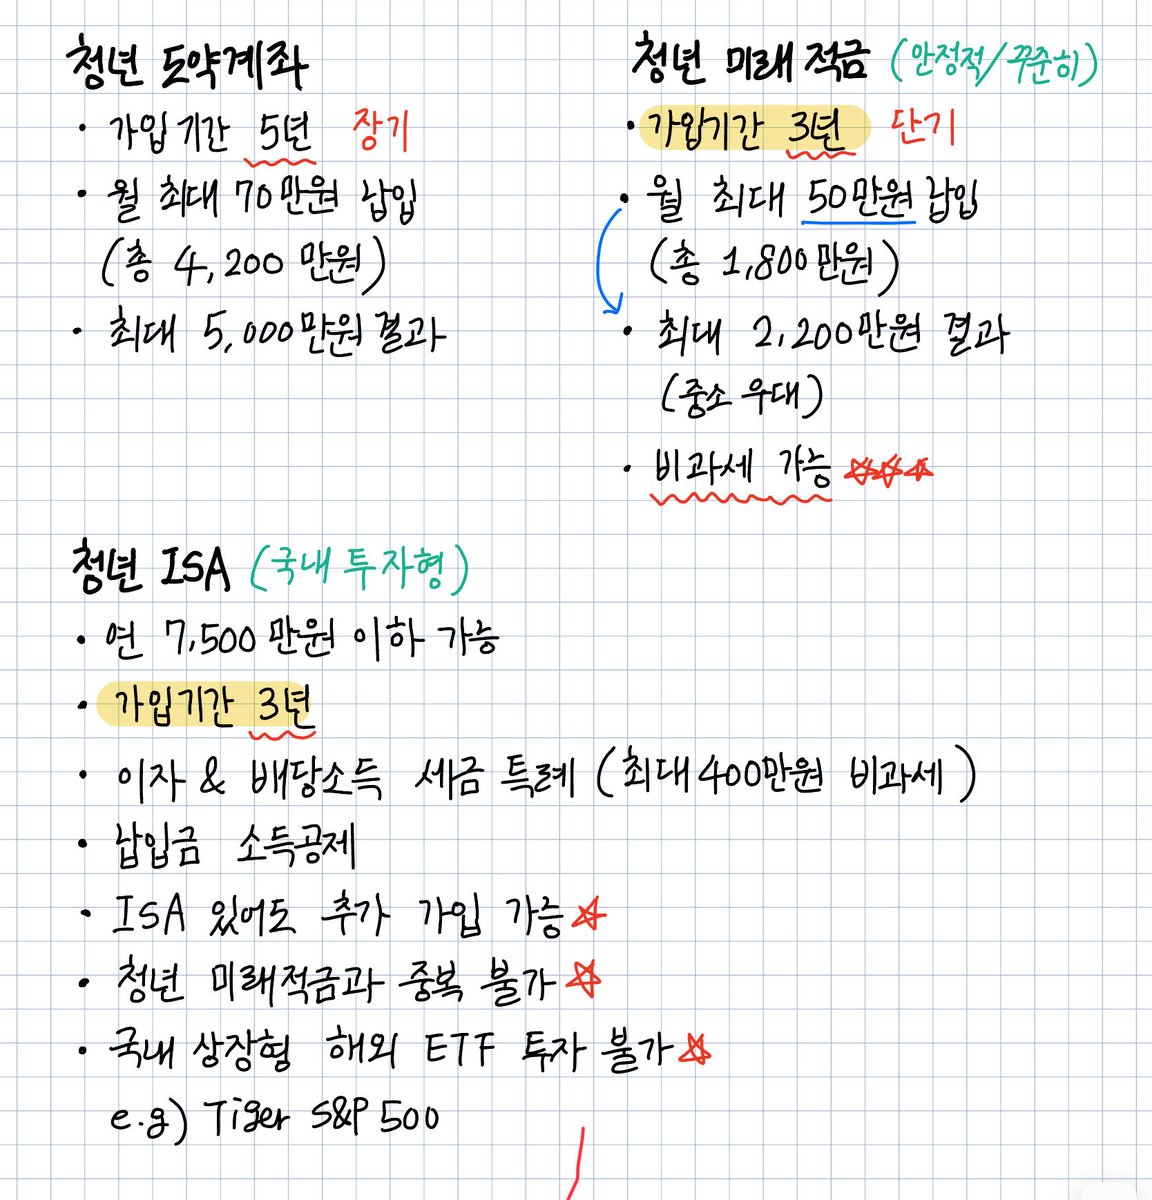 청년 도약계좌
· 가입기간 5년 장기
· 월 최대 70만원 납입
(총 4,200 만원)
· 최대 5,000만원 결과
청년 미래적금 (안정적/꾸준히)
· 가입기간 3년 단기
· 월 최대 50만원 납입
(총 1,800만원)
· 최대 2,200만원 결과
(중소 우대)
· 비과세 가능 ☆☆☆
청년 ISA (국내 투자형)
· 연 7,500만원 이하 가능
· 가입기간 3년
· 이자 & 배당소득 세금 특례 (최대 400만원 비과세)
· 납입금 소득공제
· ISA 있어도 추가 가입 가능☆
· 청년 미래적금과 중복 불가☆
· 국내 상장형 해외 ETF 투자 불가☆
e.g) Tiger S&P 500